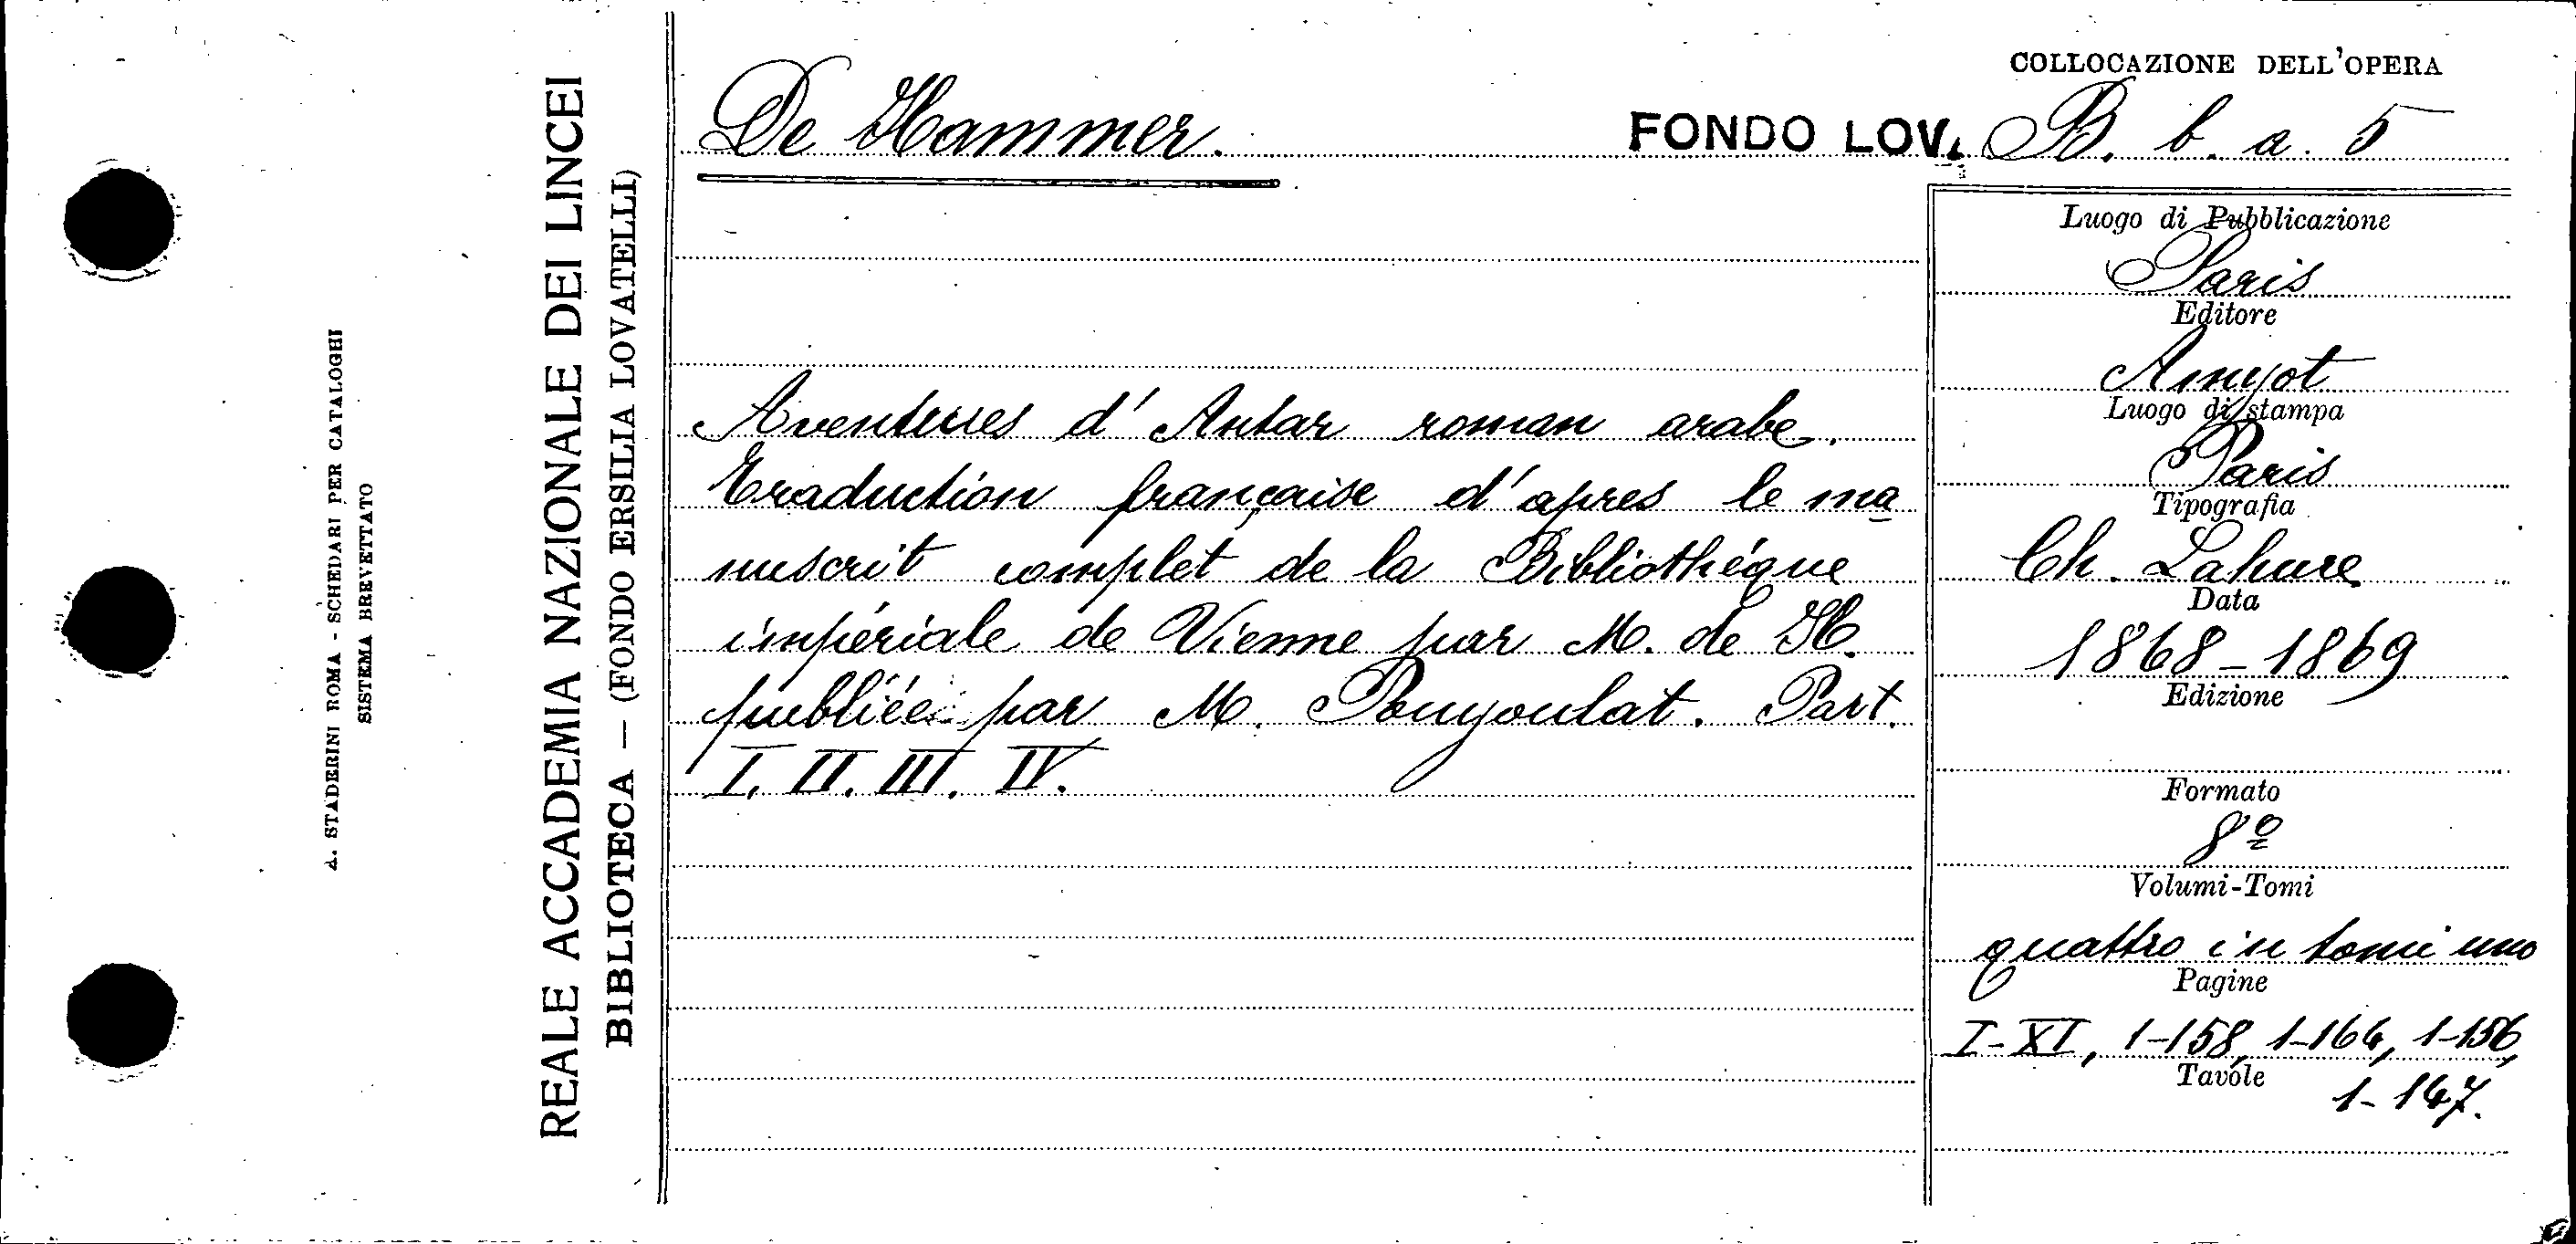 A. STADERINI ROMA - SCHEDARI PER CATALOGHI
SISTEMA BREVETTATO
REALE ACCADEMIA NAZIONALE DEI LINCEI
BIBLIOTECA — (FONDO ERSILIA LOVATELLI)
De Hammer.
COLLOCAZIONE DELL'OPERA
FONDO LOV. B. b. a. 5
Aventures d' Antar roman arabe.
Traduction française d'apres le ma
nuscrit complet de la Bibliothéque
impériale de Vienne par M. de H.
publiée par M. Pouyoulat. Part.
I. II. III. IV.
Luogo di Pubblicazione
Paris
Editore
Amyot
Luogo di stampa
Paris
Tipografia
Ch. Lahure
Data
1868-1869
Edizione
Formato
8º
Volumi-Tomi
quattro in tomi uno
Pagine
I-XI, 1-158, 1-164, 1-156,
Tavole
1-147.